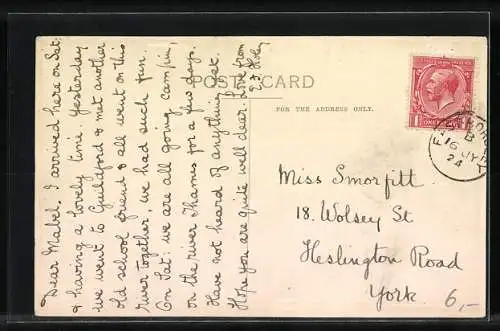 POST CARD
FOR THE ADDRESS ONLY.
Dear Mabel. I arrived here on Sat:
& having a lovely time. Yesterday
we went to Guildford & met another
old school friend & all went on this
river together, we had such fun.
On Sat: we are all going campin,
on the river Thames for a few days.
Have not heard of anything yet.
Hope you are quite well dear. Love from
Miss Smorfitt
18. Wolsey St
Heslington Road
York
6,-
B
16 JY
24